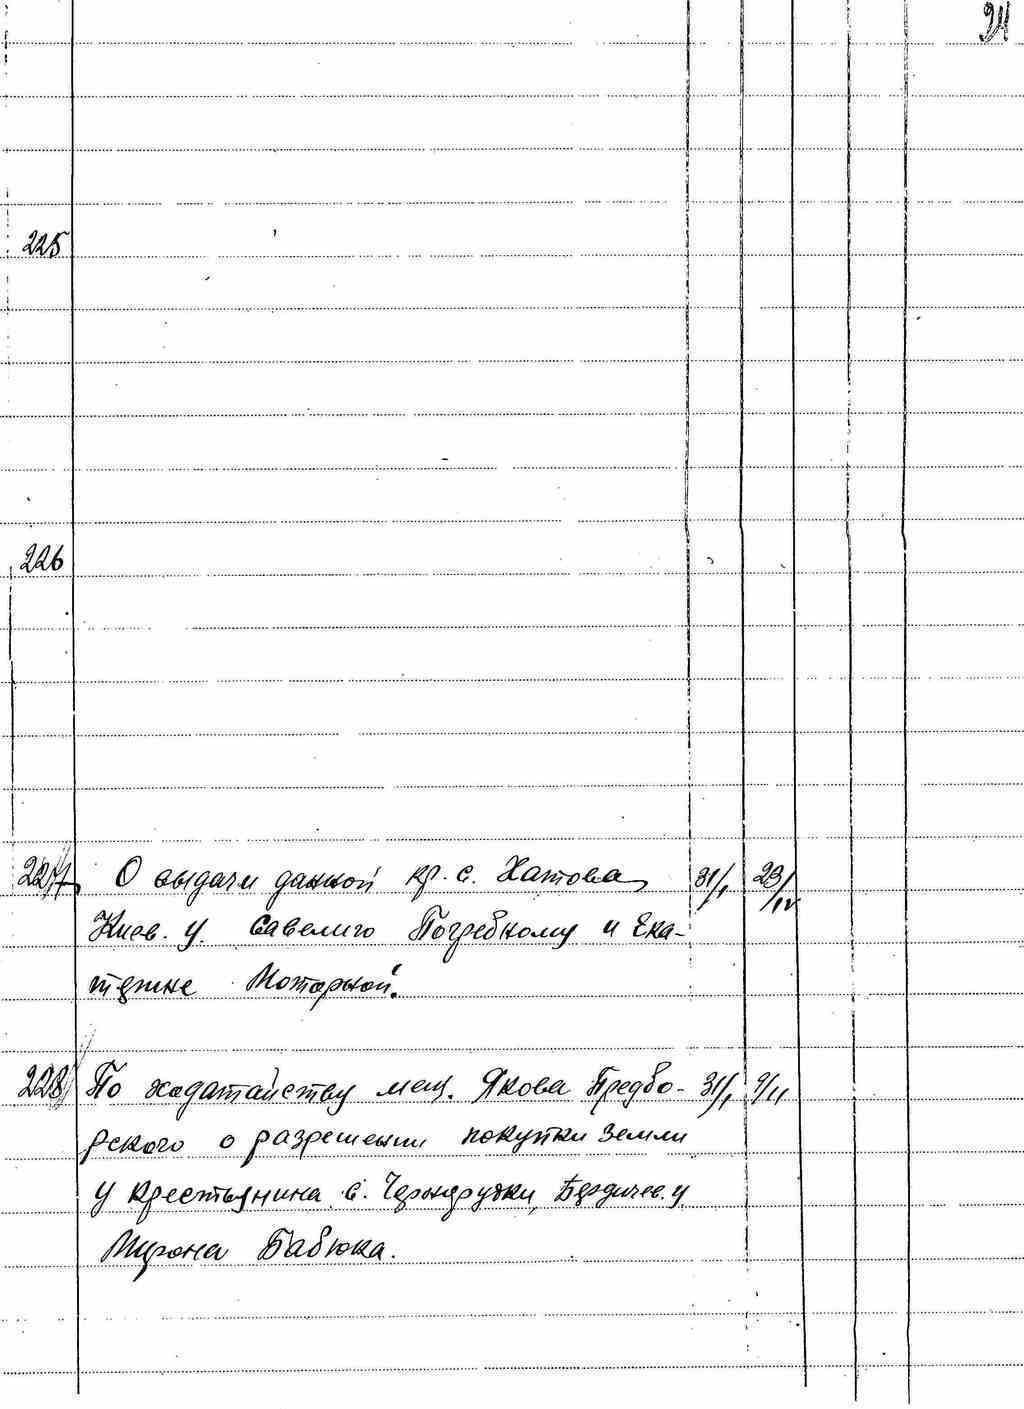 94
225
226
227 О выдачи данной кр. с. Хатова 31/I 23/IV
Киев. у. Савелию Погребному и Ека-
терине Моторной.
228 По ходатайству мещ. Якова Предбо- 31/I 9/II
рского о разрешении покупки земли
у крестьянина с. Чернорудки, Бердичев. у
Мирона Бабюка.